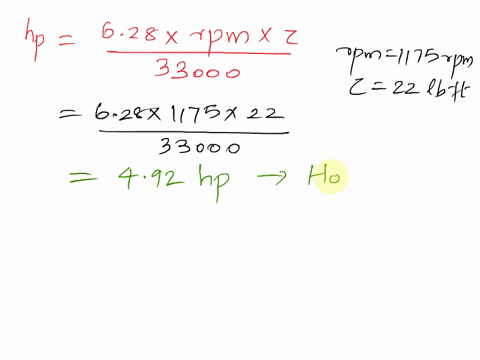 hp = 6.28 x rpm x τ
33000
rpm = 1175 rpm
τ = 22 lb ft
= 6.28 x 1175 x 22
33000
= 4.92 hp → Ho